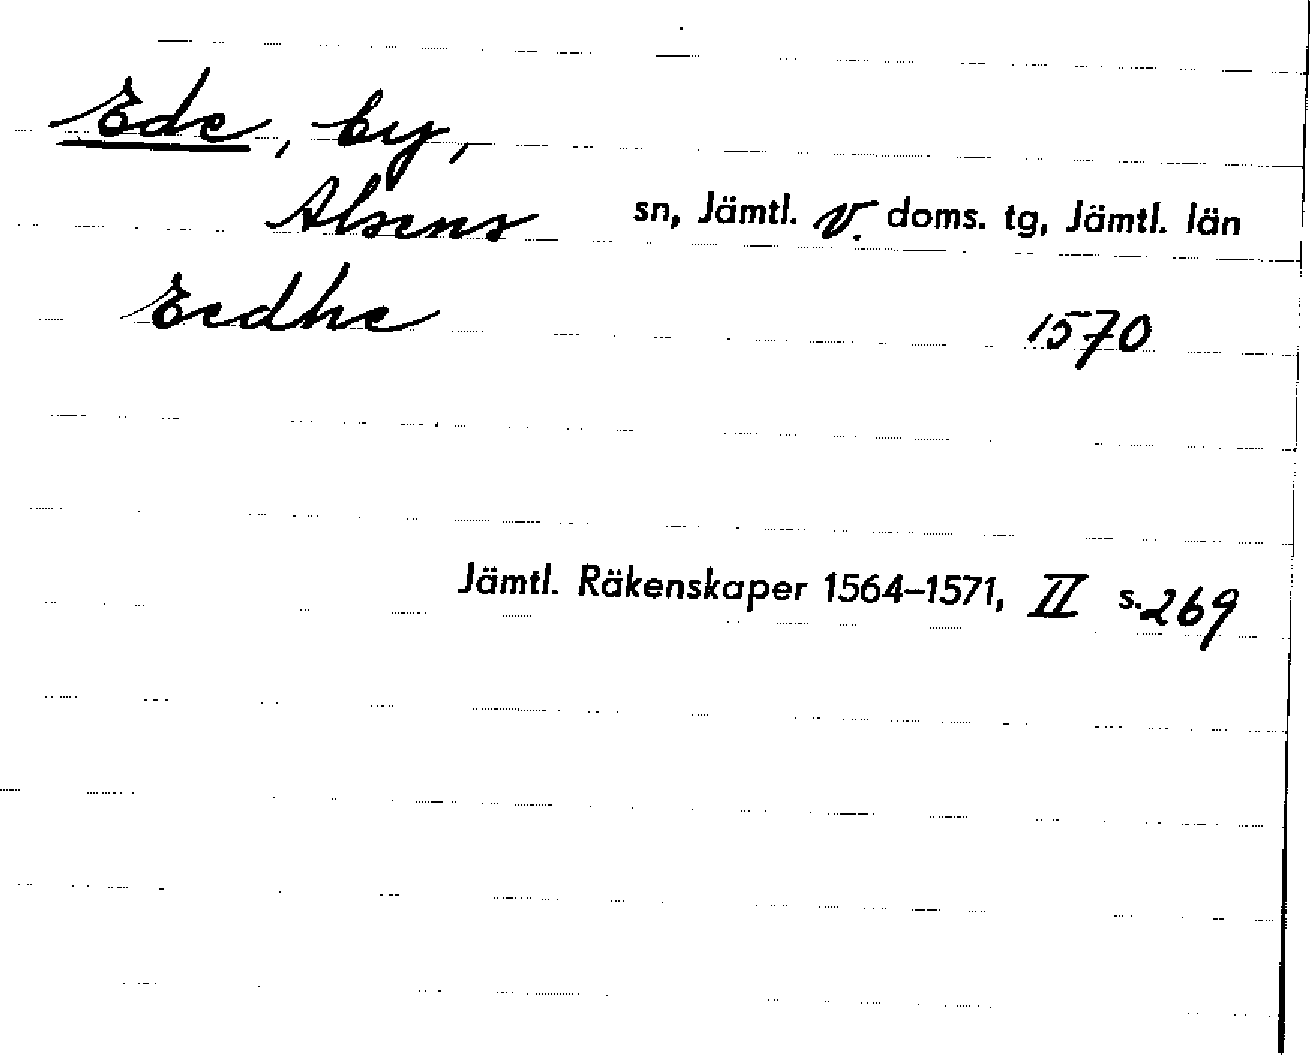 Ede, by,
Alsens sn, Jämtl. v. doms. tg, Jämtl. län
Eedhe 1570
Jämtl. Räkenskaper 1564–1571, II s. 269